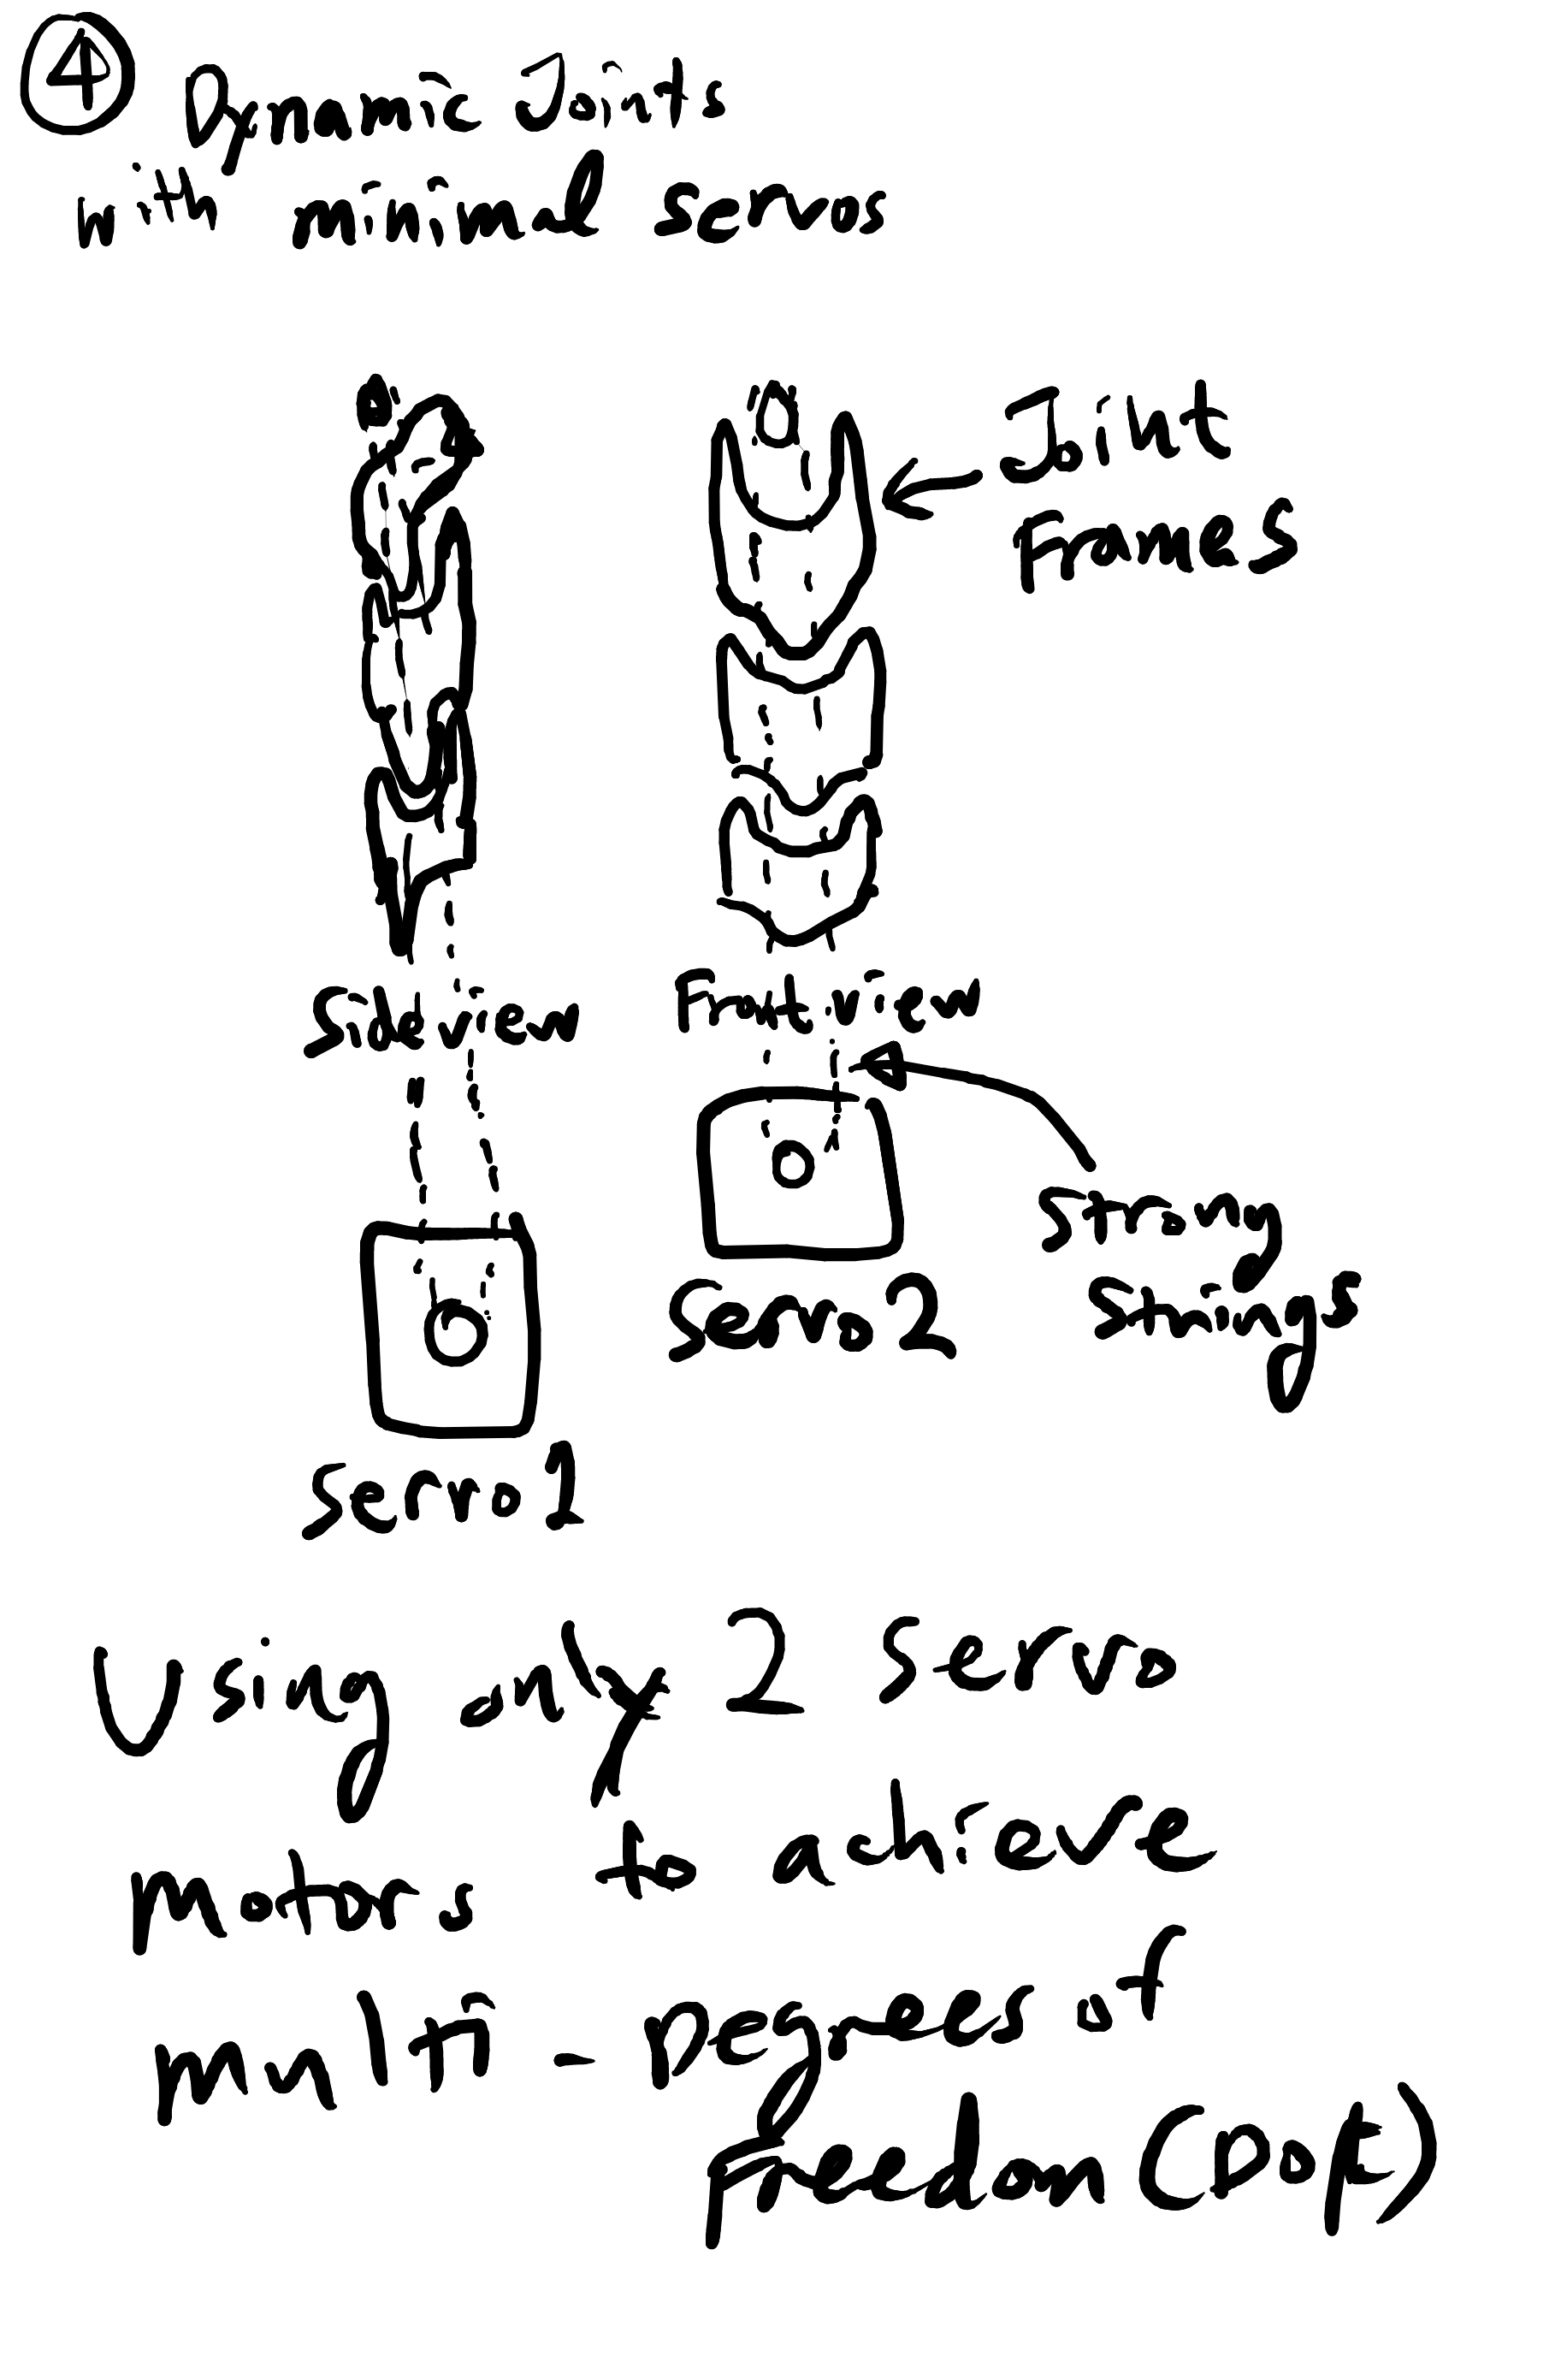 4
Dynamic Joints
with minimal servos
Joint
frames
Side view
Front view
Strong
Strings
Servo 2
Servo 1
Using only 2 Servo
Motors to achieve
multi-Degrees of
freedom (DOF)